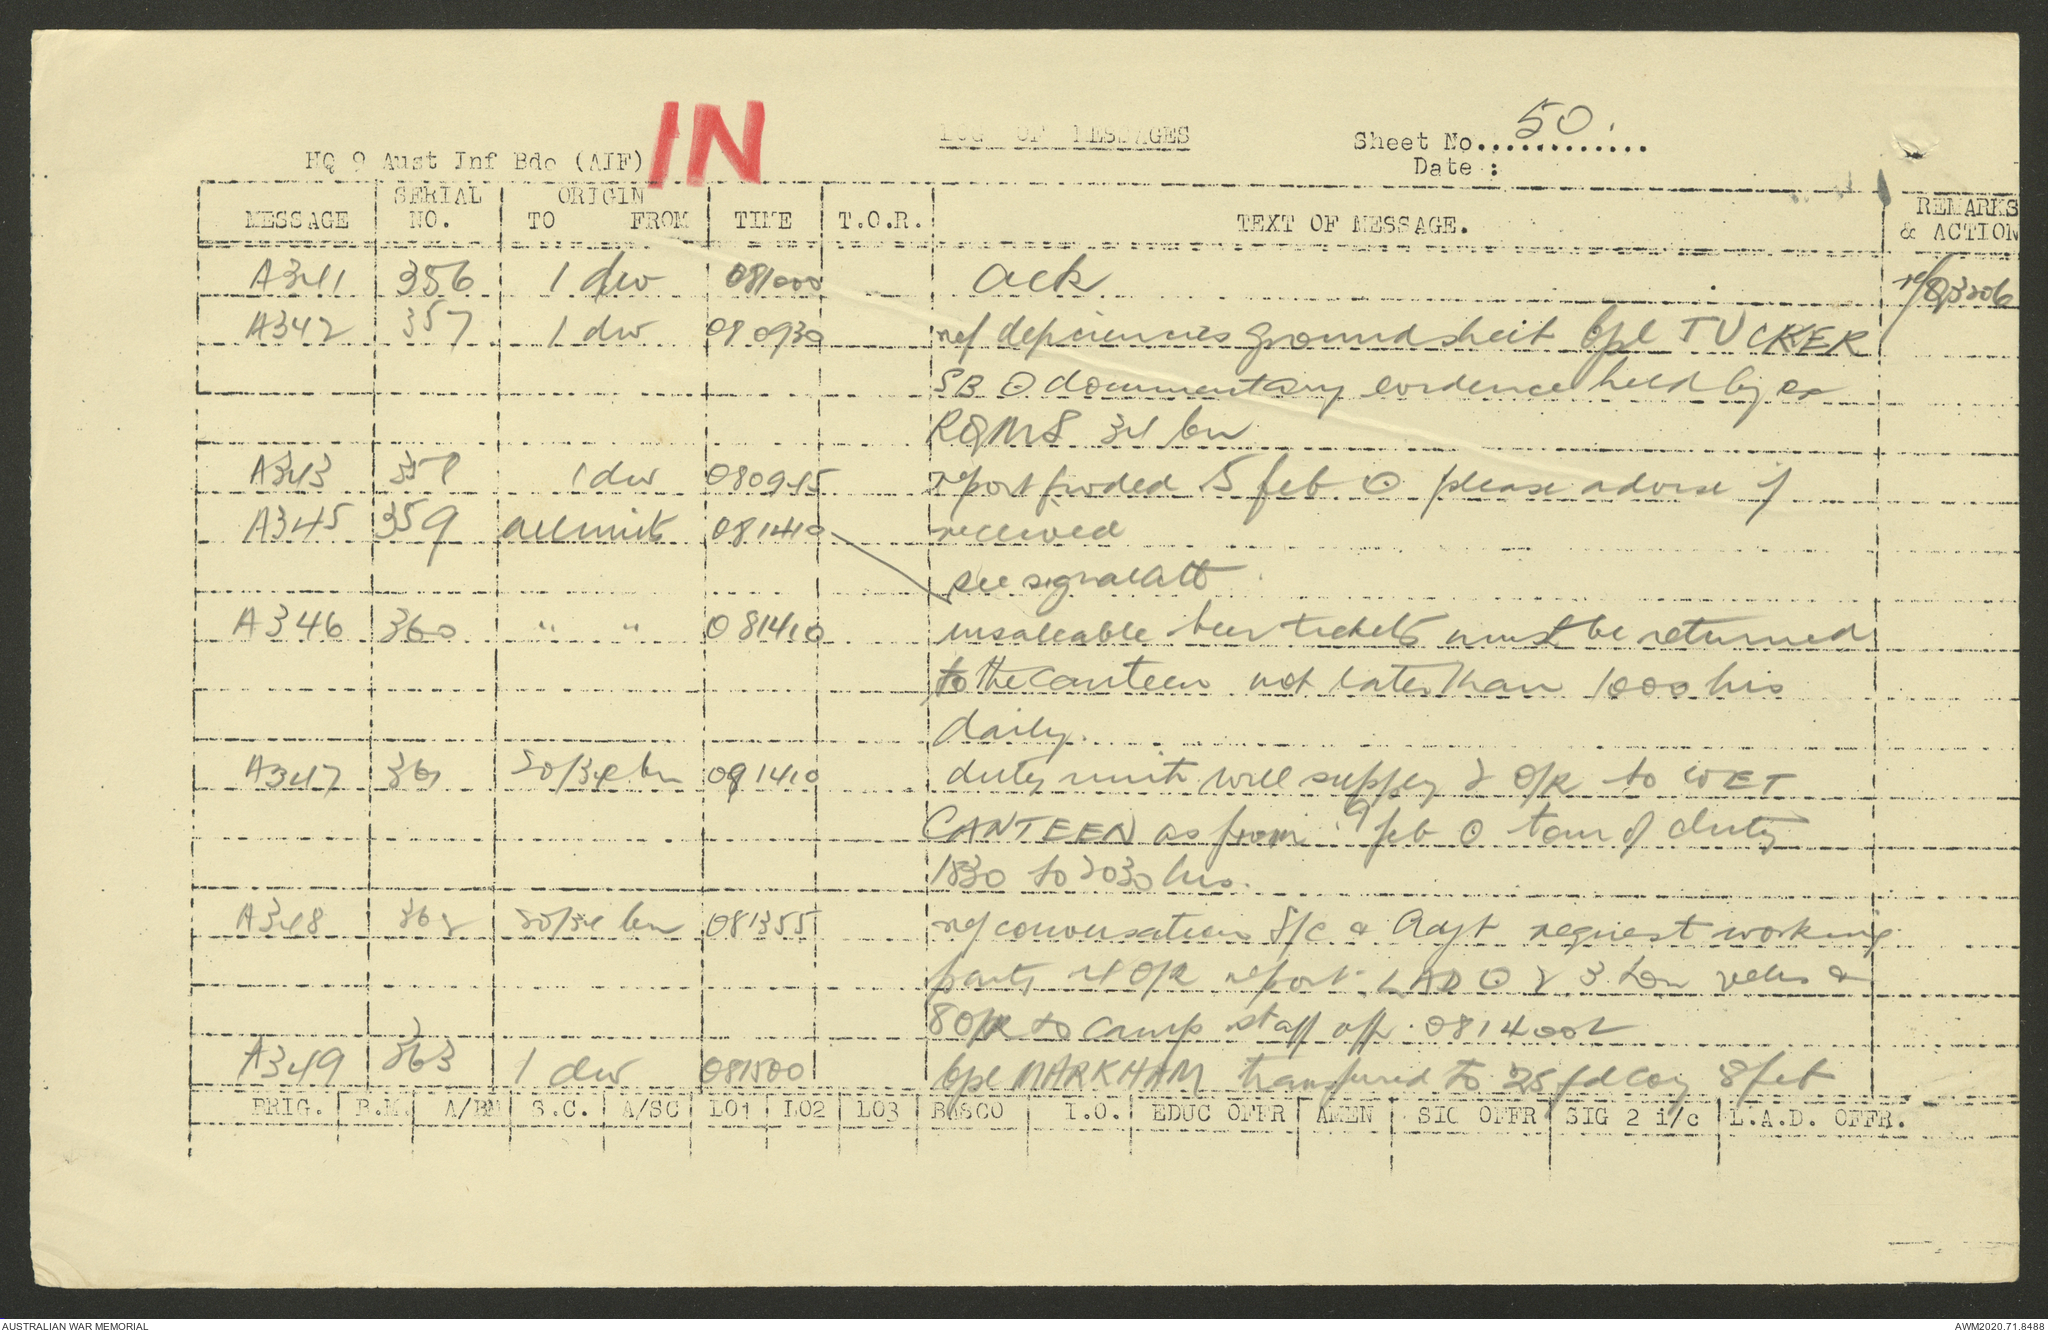 IN
LOG OF MESSAGES
Sheet No............. 50.
HQ 9 Aust Inf Bde (AIF)
Date :
MESSAGE SERIAL NO. ORIGIN TO FROM TIME T.O.R. TEXT OF MESSAGE. REMARKS & ACTION
A341 356 1 dw 081000 ack Q3206
A342 357 1 dw 080930 ref deficiencies groundsheet Cpl TUCKER
SB ⊙ documentary evidence held by ex
RQMS 34 bn
A343 358 1 dw 080945 report fwded 5 feb ⊙ please advise if
A345 359 all units 081410 received
see signal att
A346 360 " " 081410 unsaleable beer tickets must be returned
to the canteen not later than 1000 hrs
daily.
A347 361 20/34 bn 091410 duty unit will supply 2 O/R to WET
CANTEEN as from 9 feb ⊙ tour of duty
1830 to 2030 hrs.
A348 362 20/34 bn 081355 ref conversation S/C & Adjt request working
party 4 O/R report LAD ⊙ 2 3 ton vehs &
8 O/R to camp staff off. 081400L
A349 363 1 dw 081500 Cpl MARKHAM transfered to 25 fd coy 8 feb
BRIG. B.M. A/BM S.C. A/SC LO1 LO2 LO3 BASCO I.O. EDUC OFFR AMEN SIG OFFR SIG 2 i/c L.A.D. OFFR.
AUSTRALIAN WAR MEMORIAL
AWM2020.71.8488